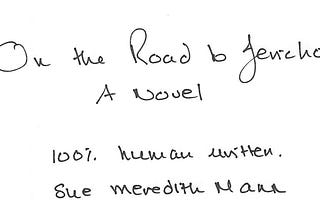 On the Road to Jericho
A Novel
100% human written.
Sue Meredith Mann